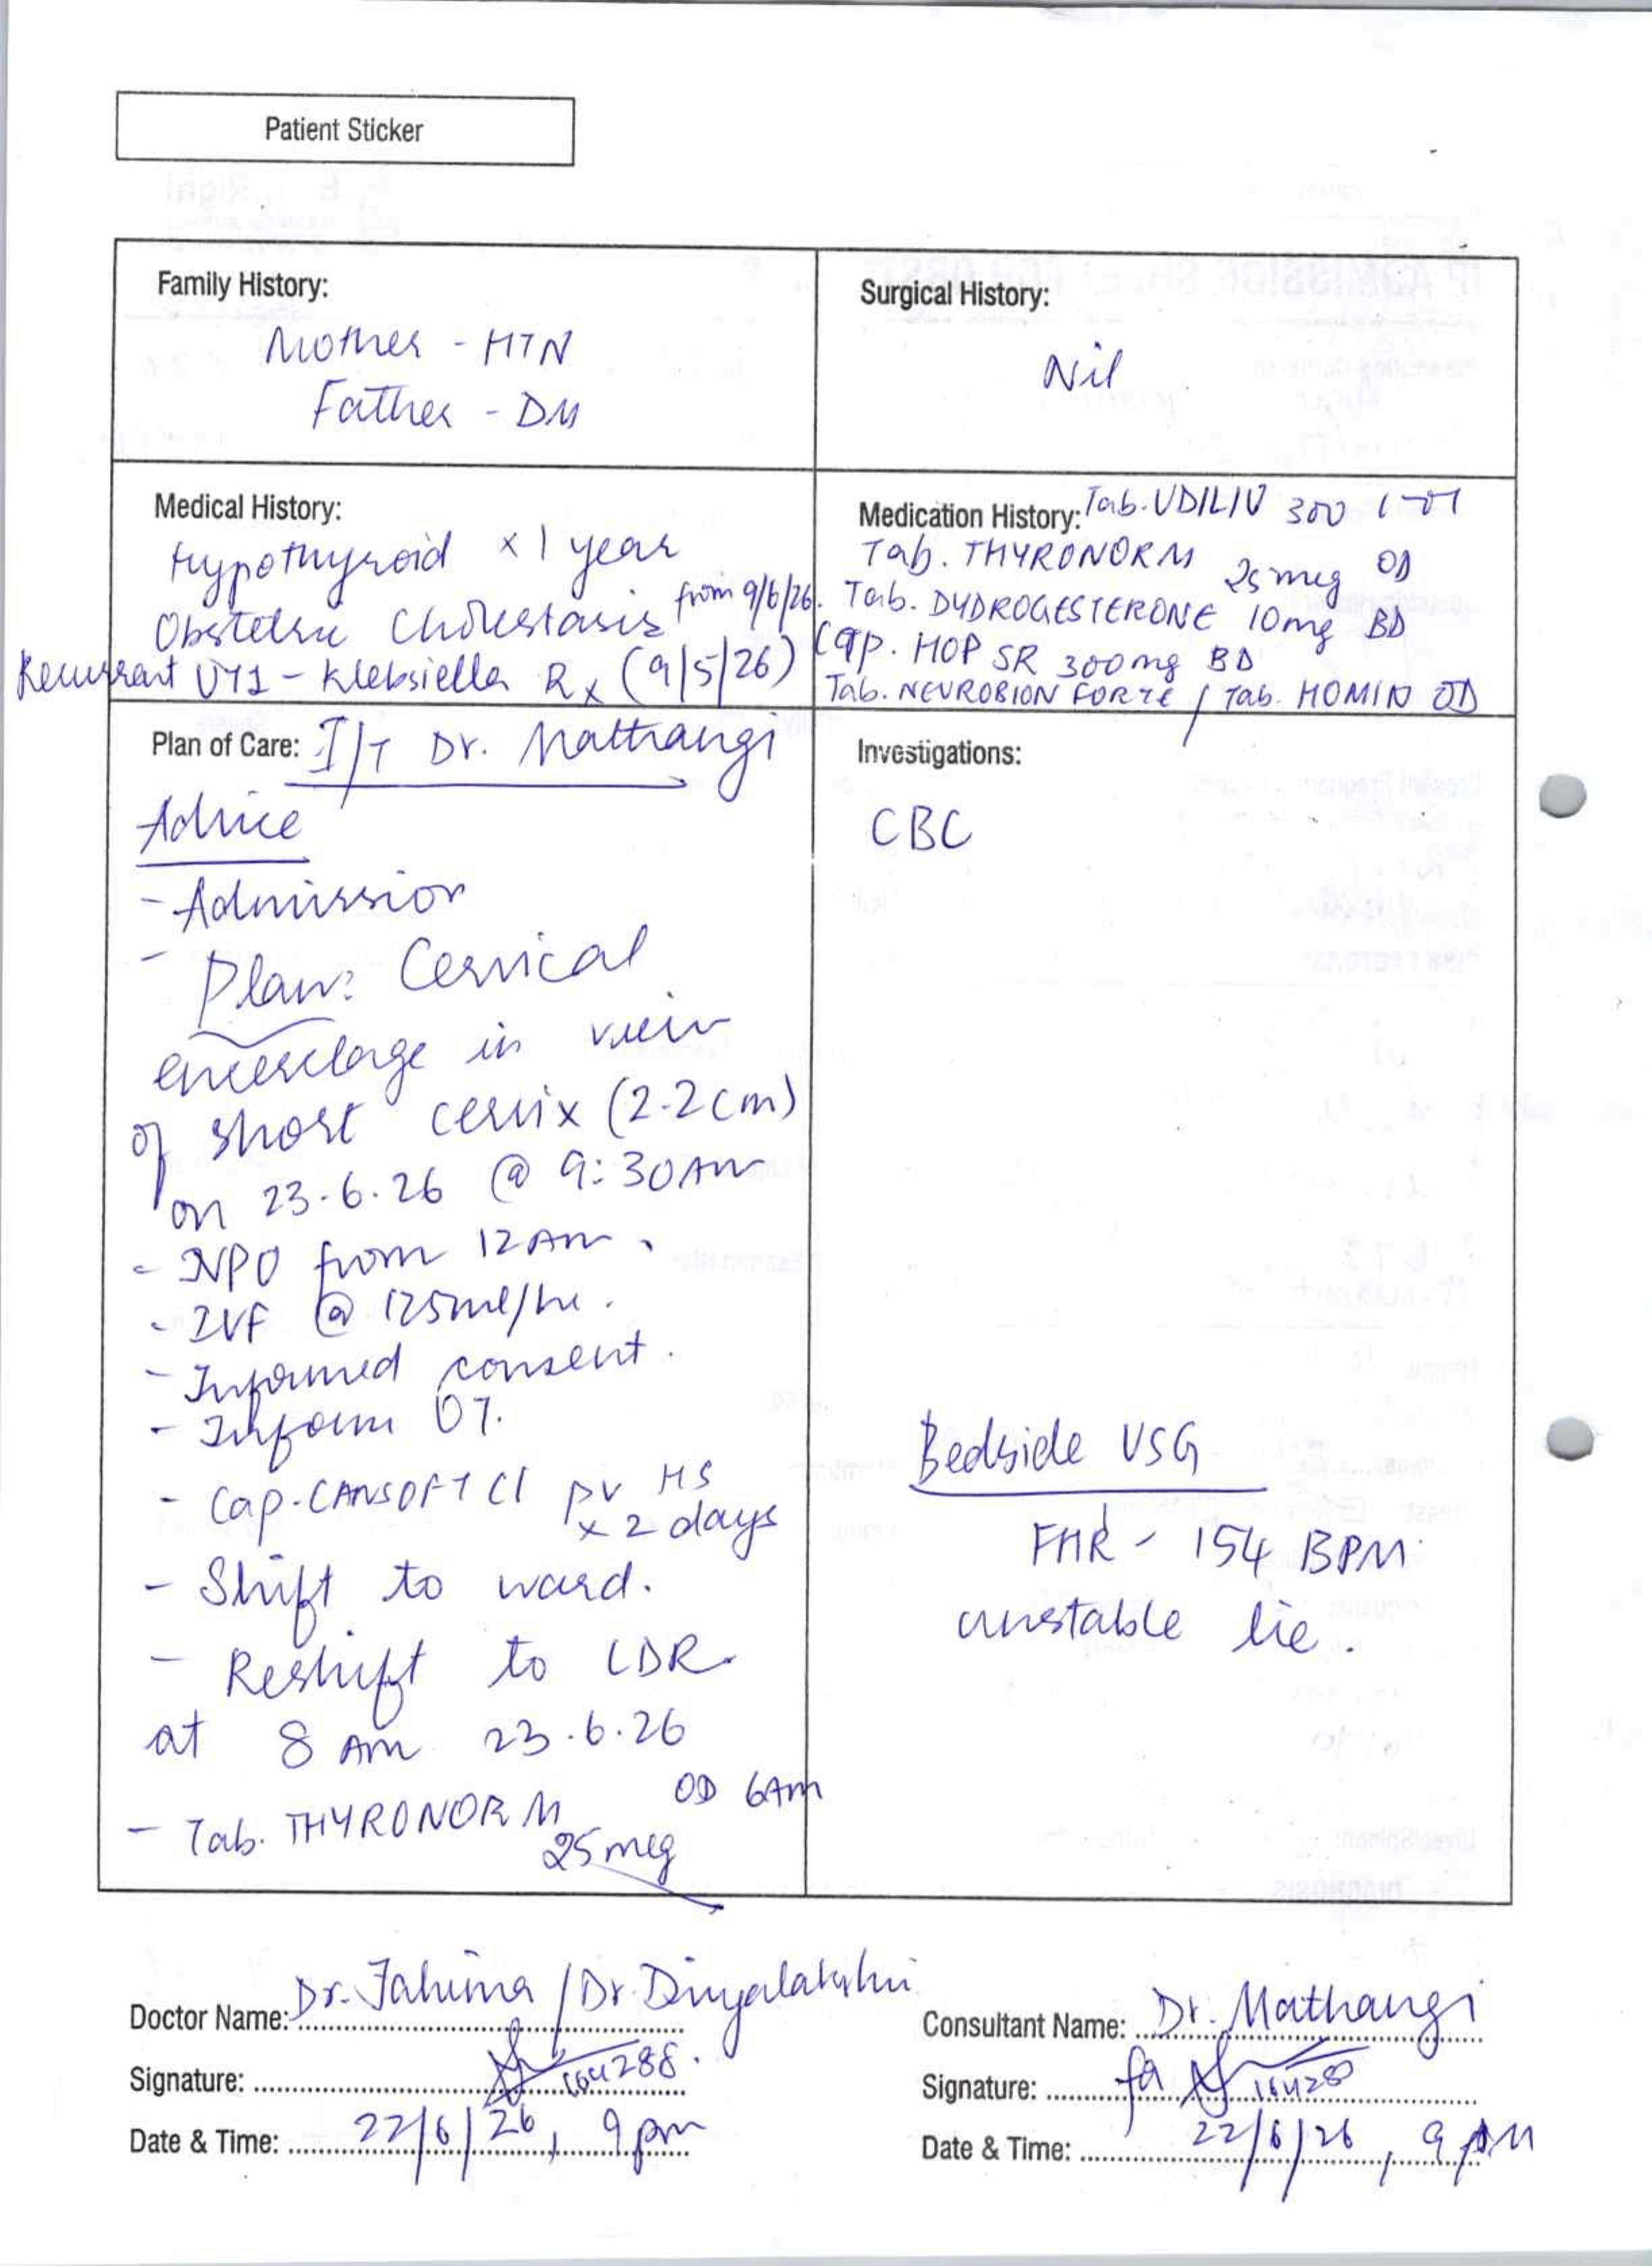 Patient Sticker
Family History:
Mother - HTN
Father - DM
Surgical History:
Nil
Medical History:
Hypothyroid x 1 year
Obstetric Cholestasis from 9/6/26.
Recurrent UTI - Klebsiella Rx (9/5/26)
Medication History: Tab. UDILIV 300 1-0-1
Tab. THYRONORM 25 mcg OD
Tab. DYDROGESTERONE 10mg BD
Cap. HOP SR 300mg BD
Tab. NEUROBION FORTE / Tab. HOMIN OD
Plan of Care: I/T Dr. Mathangi
Advice
- Admission
- Plan: Cervical
encerclage in view
of short cervix (2.2cm)
on 23.6.26 @ 9:30AM
- NPO from 12 AM.
- IVF @ 125ml/hr.
- Informed consent.
- Inform OT.
- Cap. CANSOFT Cl PV HS
x 2 days
- Shift to ward.
- Reshift to LDR
at 8 Am 23.6.26
- Tab. THYRONORM OD 6Am
25 mcg
Investigations:
CBC
Bedside USG
FHR - 154 BPM
unstable lie.
Doctor Name: Dr. Fahima / Dr. Divyalakshmi
Signature: 164288.
Date & Time: 22/6/26, 9 pm
Consultant Name: Dr. Mathangi
Signature: 
Date & Time: 22/6/26, 9 PM